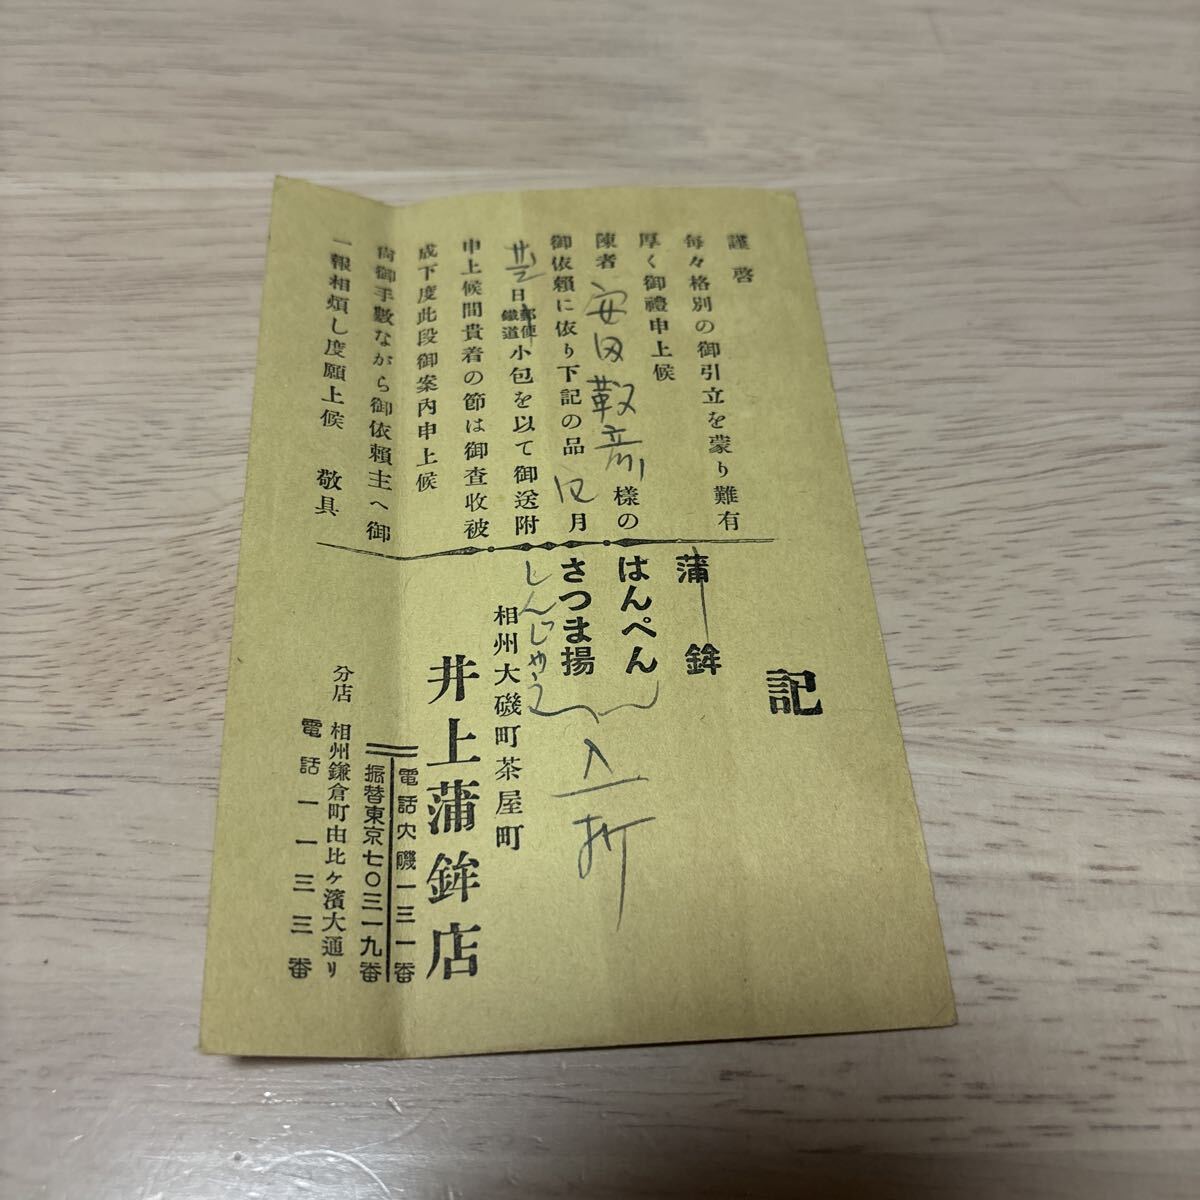 謹啓
毎々格別の御引立を蒙り難有
厚く御禮申上候
陳者安田靫彦様の
御依頼に依り下記の品12月
日郵便鐵道小包を以て御送附
申上候間貴着の節は御査收被
成下度此段御案内申上候
尚御手數ながら御依頼主へ御
一報相煩し度願上候 敬具
記
蒲鉾
はんぺん
さつま揚
しんじゃう
入
折
相州大磯町茶屋町
井上蒲鉾店
電話大磯一三一番
振替東京七〇三一九番
分店 相州鎌倉町由比ヶ濱大通り
電話一一三三番